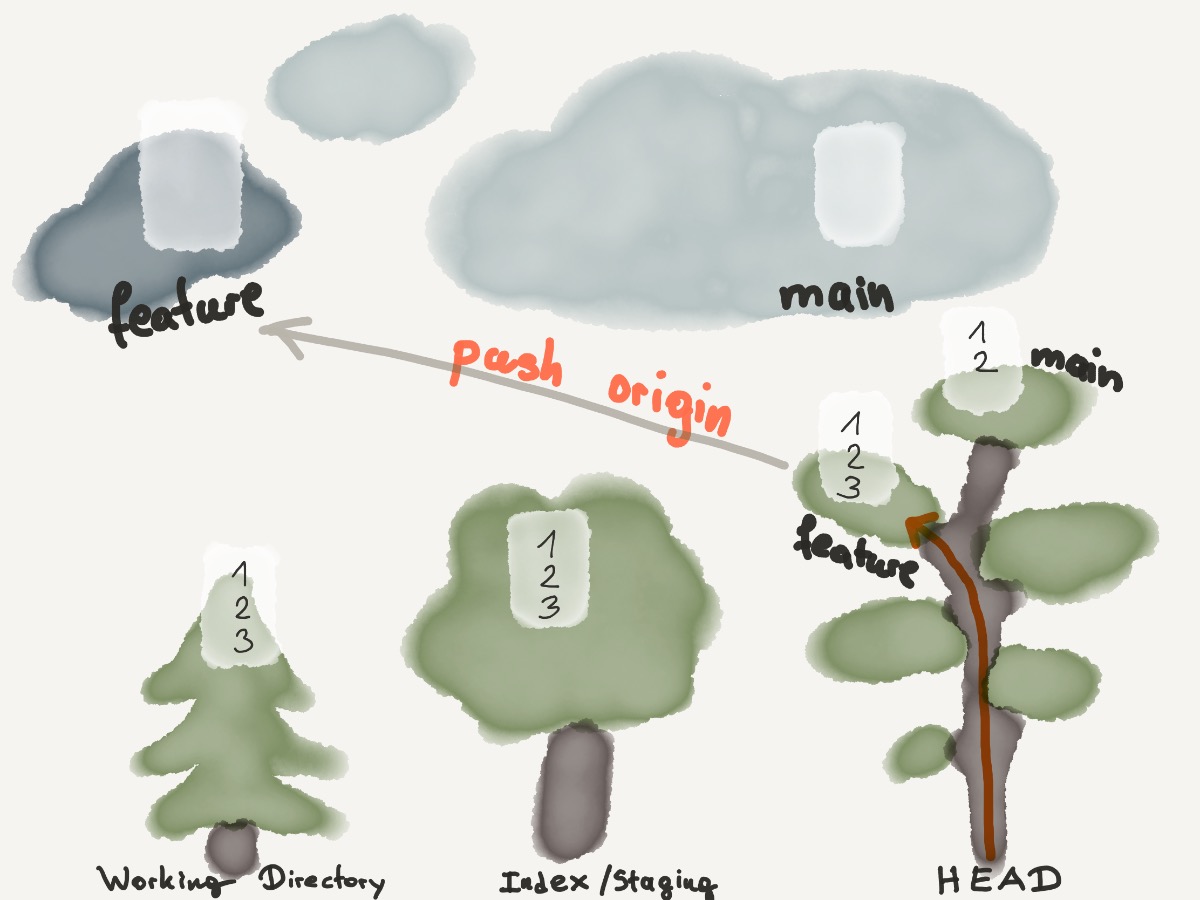 feature
main
push origin
1
2
main
1
2
3
feature
1
2
3
1
2
3
Working Directory
Index/Staging
HEAD